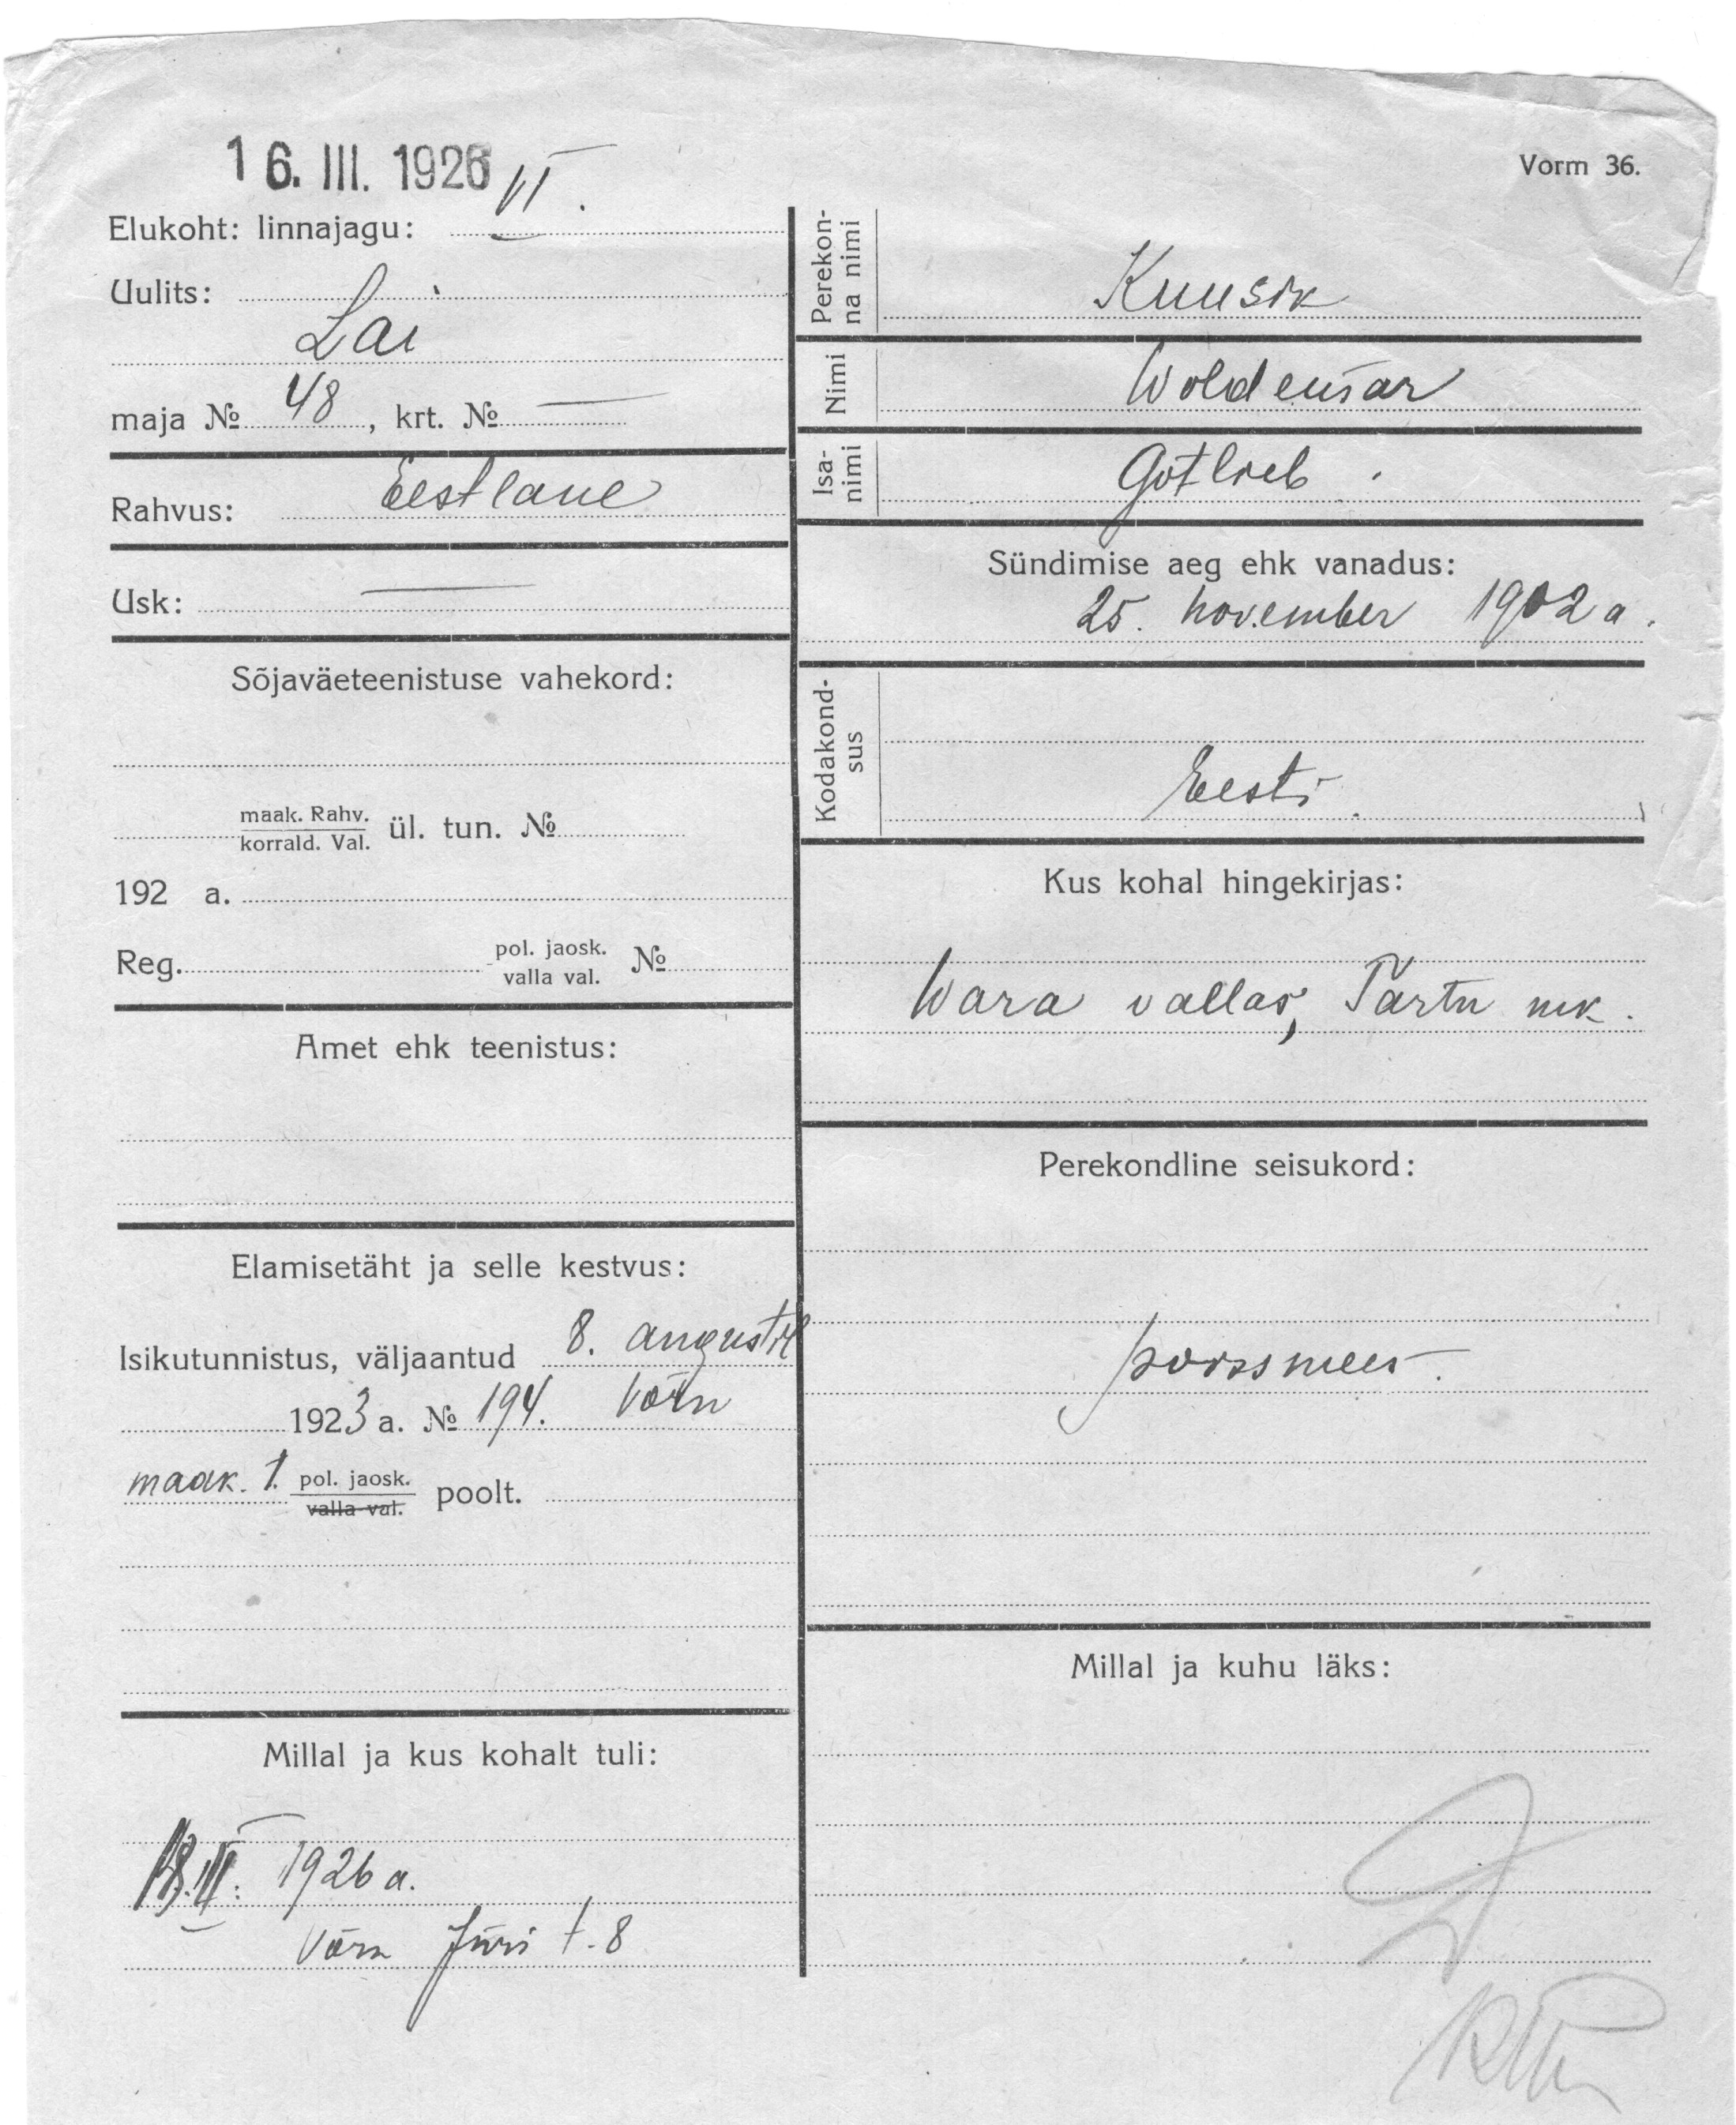 16. III. 1926
Vorm 36.
Elukoht: linnajagu: VI.
Uulits:
Lai
maja № 48, krt. № —
Rahvus: Eestlane
Usk: —
Sõjaväeteenistuse vahekord:
maak. Rahv.
korrald. Val. ül. tun. №
192 a.
Reg. pol. jaosk.
valla val. №
Amet ehk teenistus:
Elamisetäht ja selle kestvus:
Isikutunnistus, väljaantud 8. augustil
1923 a. № 194. Võru
maak. 1. pol. jaosk.
valla val. poolt.
Millal ja kus kohalt tuli:
1926 a.
Võru Jüri t. 8
Perekon-
na nimi
Kuusik
Nimi
Woldemar
Isa-
nimi
Gotlieb.
Sündimise aeg ehk vanadus:
25. november 1902 a.
Kodakond-
sus
Eesti.
Kus kohal hingekirjas:
Wara vallas, Tartu mk.
Perekondline seisukord:
poissmees.
Millal ja kuhu läks: